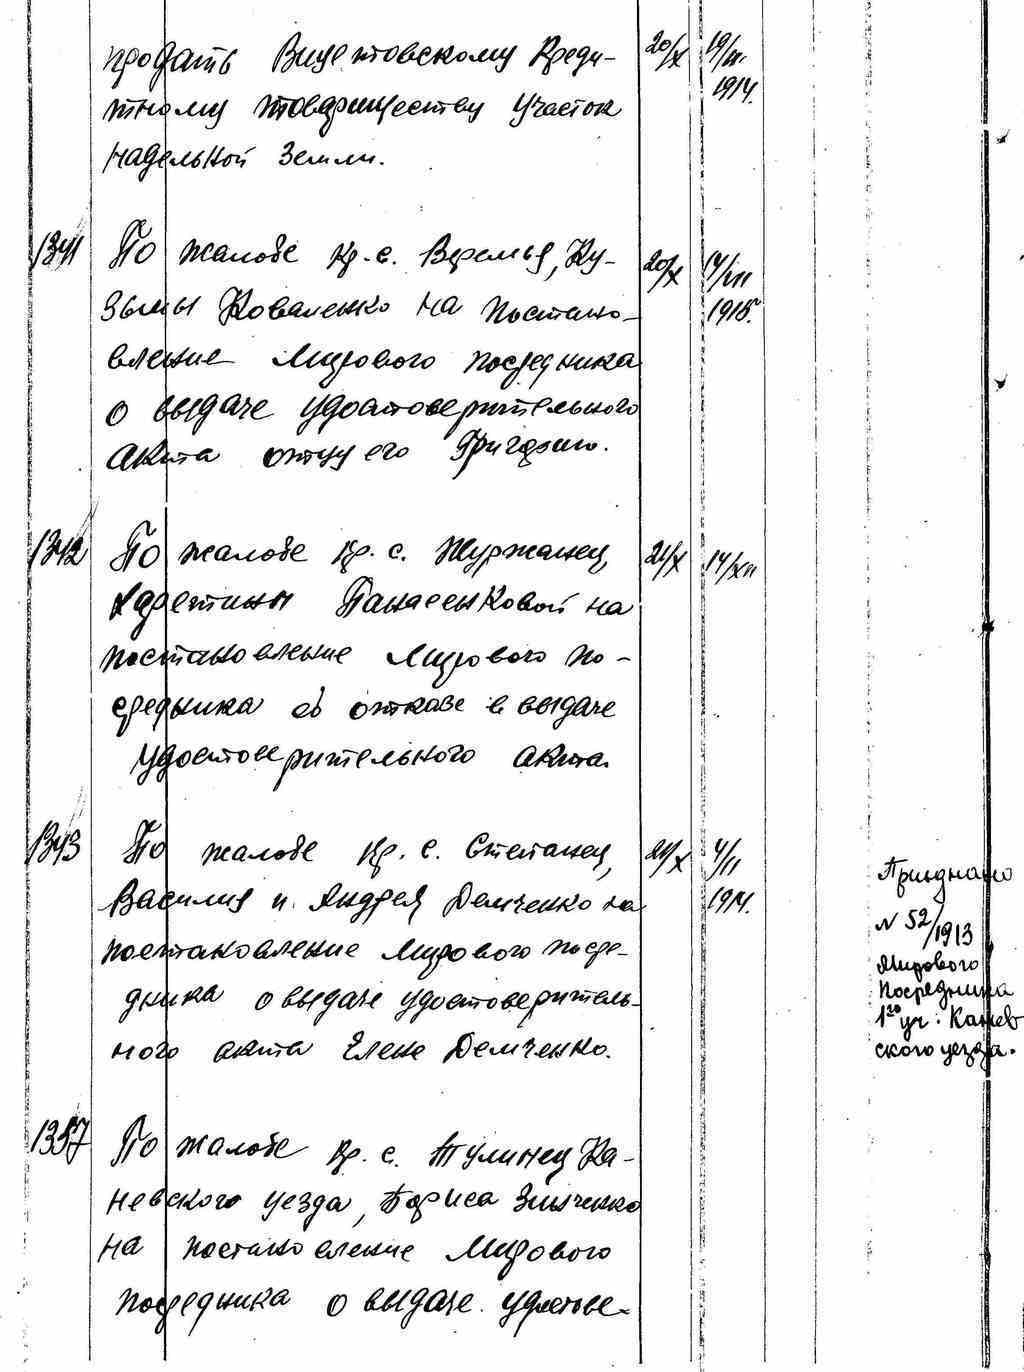 продать Виценто­вскому Креди- 20/X 19/III.
тному товариществу участок 1914.
надельной земли.
1341 По жалобе кр. с. Веремья, Ку- 20/X 14/VII
зьмы Коваленко на постано- 1915г.
вление Мирового посредника
о выдаче удостоверительного
акта отцу его Григорию.
1342 По жалобе кр. с. Журжинец, 21/X 14/XII
Харетины Панасенковой на
постановление Мирового по-
средника об отказе в выдаче
удостоверительного акта.
1343 По жалобе кр. с. Степанец, 21/X 4/II
Василия и Андрея Демченко на 1914.
постановление Мирового посре-
дника о выдаче удостоверитель-
ного акта Елене Демченко.
Приднано
N 52/1913
Мирового
Посредника
1го уч. Канев
ского уезда.
1357 По жалобе кр. с. Тулинец Ка-
невского уезда, Бориса Зинченко
на постановление Мирового
посредника о выдаче удостове-